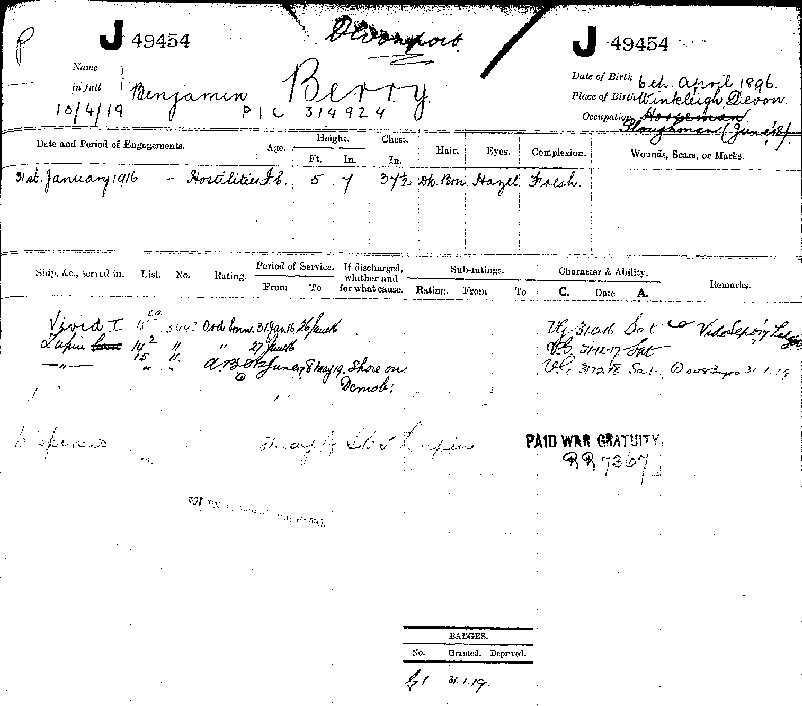 J 49454
Devonport.
J 49454
Name in full
Benjamin Berry
10/4/19
P I C 314924
Date of Birth 6th April 1896.
Place of Birth Winkleigh Devon
Occupation Horseman
Ploughman (June '18)
Date and Period of Engagements. Age. Height. Ft. In. Chest. In. Hair. Eyes. Complexion. Wounds, Scars, or Marks.
31st January 1916 - Hostilities 5 7 37½ Dk. Brn Hazel Fresh.
Ship, &c., served in. List. No. Rating. Period of Service. From To If discharged, whether and for what cause. Sub-ratings. Rating. From To Character & Ability. C. Date A. Remarks.
Vivid I Ord 31 Jan 16 26 Jun 16 VG 31.12.16 Sat
Lupin 14² " " 27 Jun 16 VG 31-12-17 Sat
—"— 15 11. " " AB 8 May 19. Shore on VG 31.12.18 Sat. 31.1.19
Demob:
Lupin
PAID WAR GRATUITY.
RR 7367
BADGES.
No. Granted. Deprived.
G1 31.1.19.